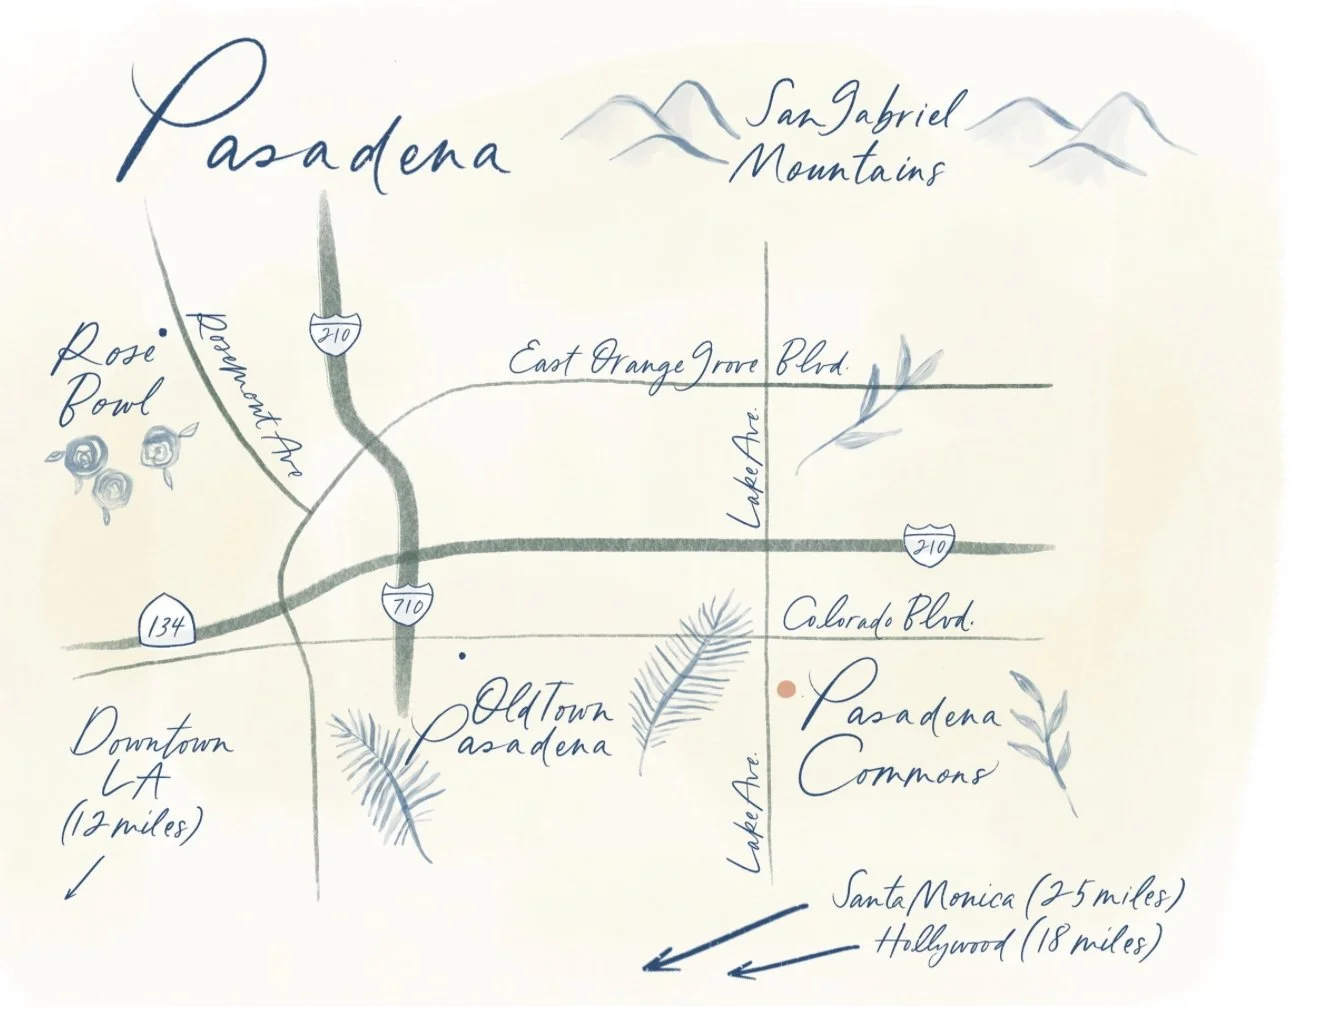 Pasadena
San Gabriel
Mountains
Rose
Bowl
Rosemont Ave
210
East Orange Grove Blvd.
Lake Ave.
210
134
710
Colorado Blvd.
Old Town
Pasadena
Pasadena
Commons
Downtown
LA
(12 miles)
Lake Ave.
Santa Monica (25 miles)
Hollywood (18 miles)